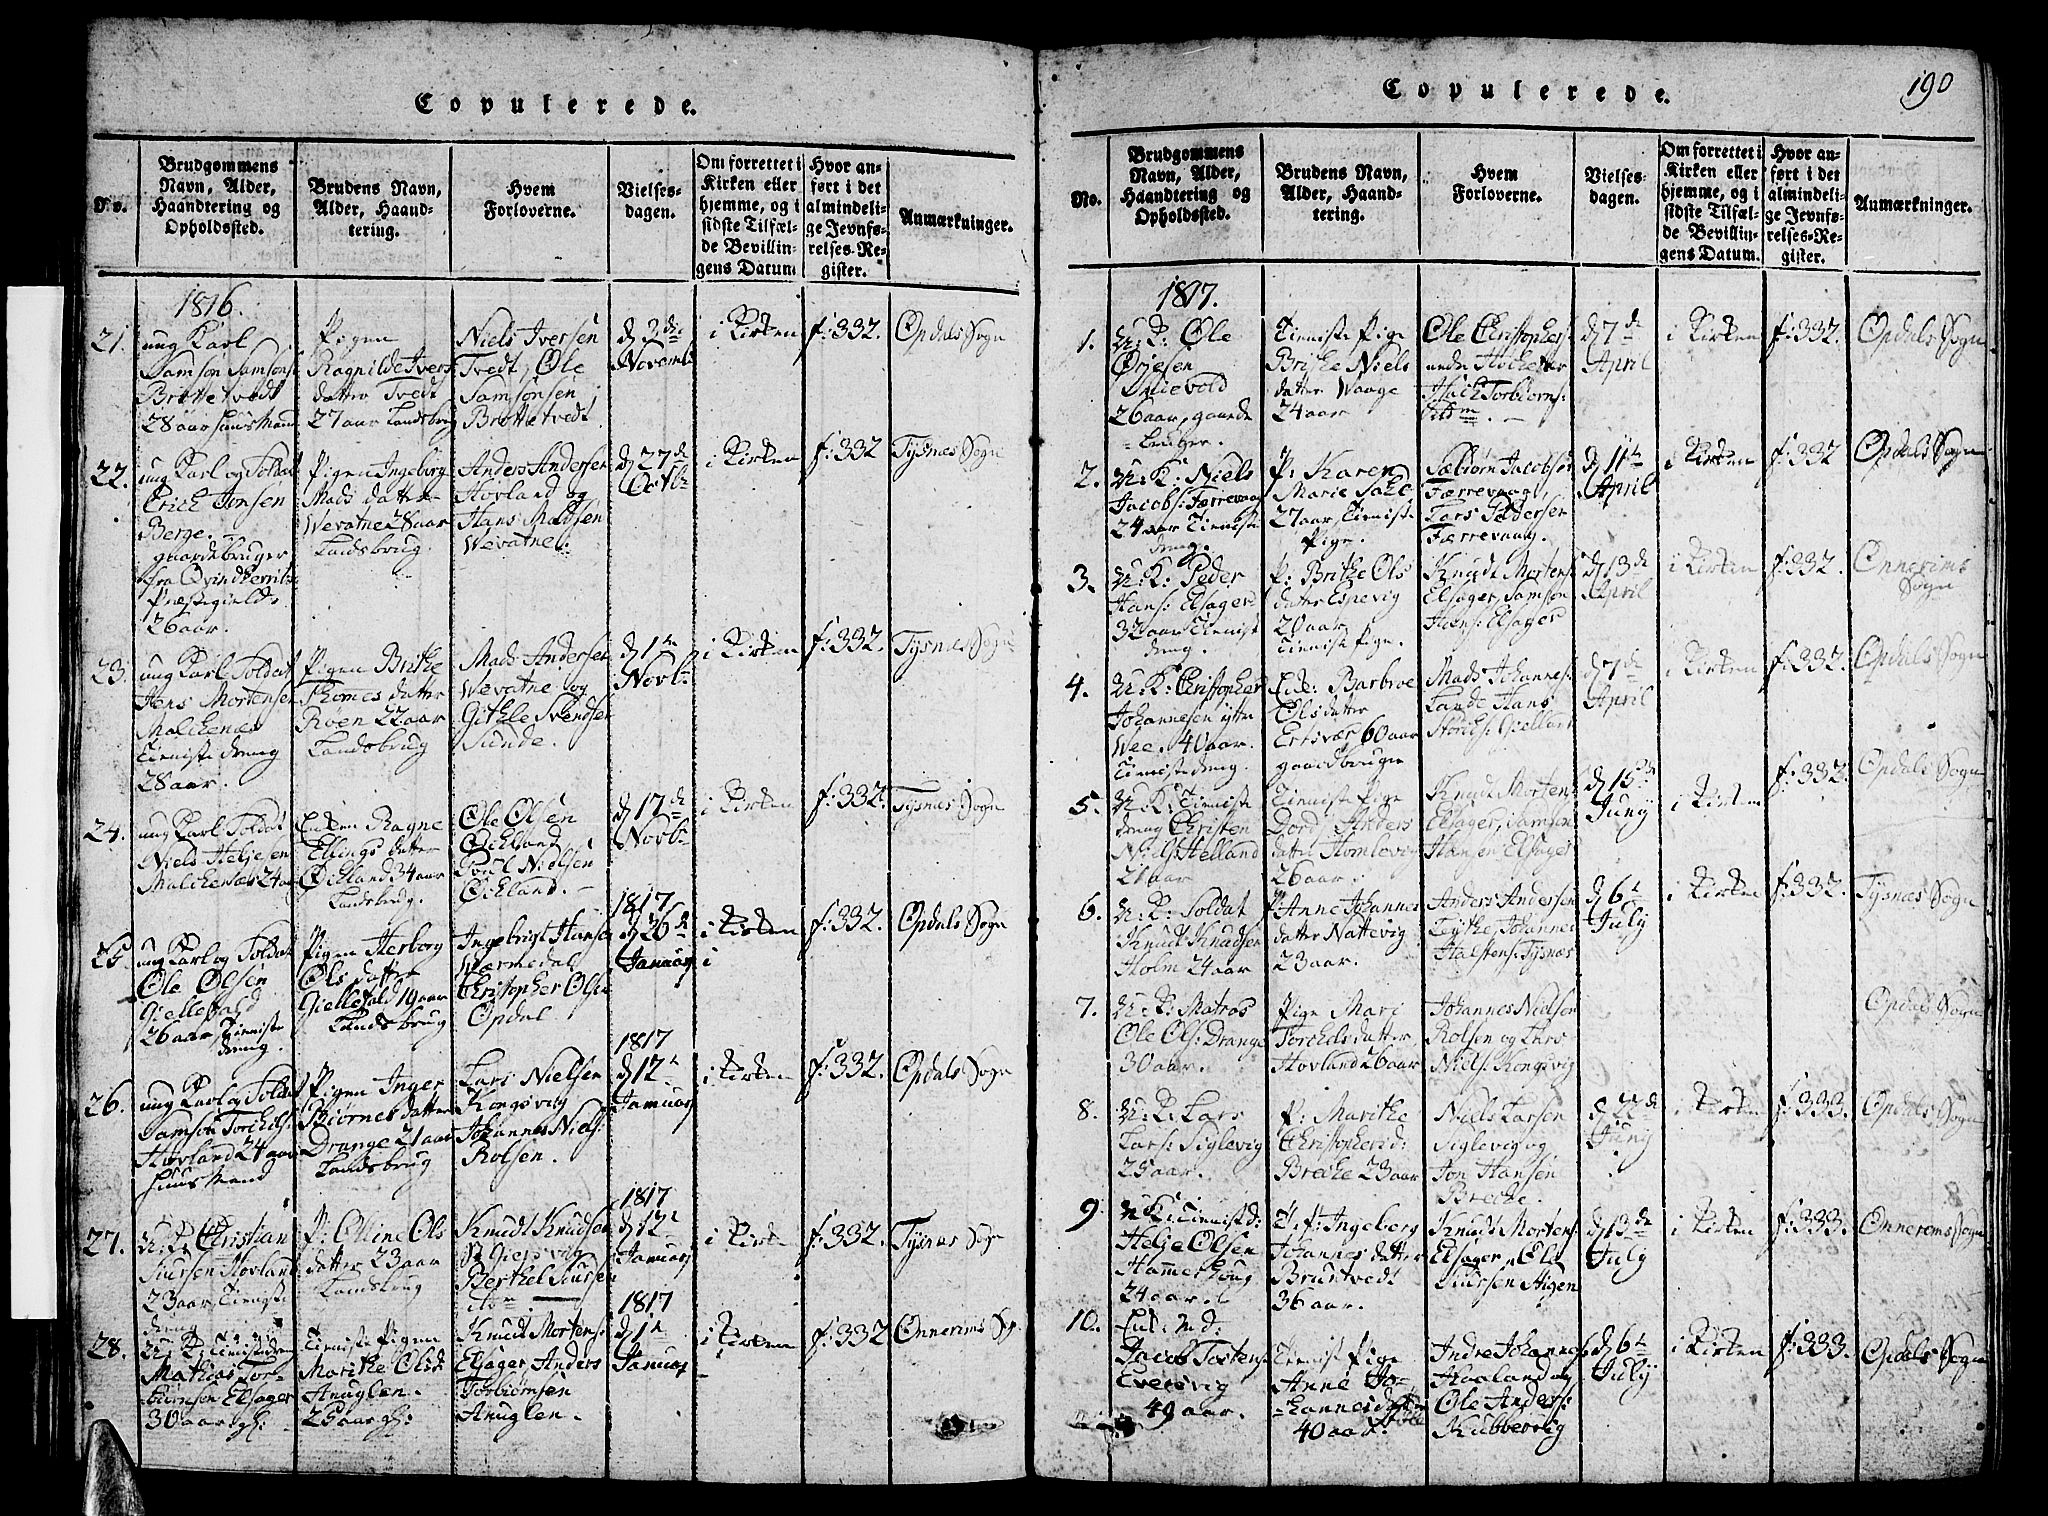 Copulerede.
No.
Brudgommens
Navn, Alder,
Haandtering og
Opholdssted.
Brudens Navn,
Alder, Haand-
tering.
Hvem
Forloverne.
Vielses-
dagen.
Om forrettet i
Kirken eller
hjemme, og i
sidste Tilfæl-
de Bevillin-
gens Datum.
Hvor an-
ført i det
almindeli-
ge Jevnfø-
relses-Re-
gister.
Anmærkninger.
1816.
21.
ung Karl
Samson Samsons:
Brottetvedt
28 aar Huusmand
Pigen
Ragnilde Ivers
datter Tvedt
27 aar Landsbrug
Niels Iversen
Tvedt, Ole
Samsonsen
Brottetvedt
d 3de
Novemb
i Kirken
f: 332.
Opdals Sogn
22.
ung Karl og Soldat
Erich Jonsen
Berge.
gaardebruger
fra
Præstegields
26 aar.
Pigen Ingeborg
Mads datter
Wevatne 28 aar
Landsbrug.
Anders Andersen
Hovland og
Hans Madsen
Wevatne.
d 27de
Octb
i Kirken
f: 332
Tysnes Sogn
23.
ung Karl Soldat
Jens Mortensen
Malchenæs
Tieniste dreng
28 aar.
Pigen Brithe
Thomes datter
Roen 22 aar
Landsbrug
Mads Andersen
Wevatne og
Githle Svendsen
Sunde.
d 1te
Novb
i Kirken
f: 332.
Tysnes Sogn
24.
ung Karl Soldat
Niels Heljesen
Malchenæs 24 aar
Enken Ragne
Ellings datter
Økland 34 aar
Landsbrug.
Ole Olsen
Økland
Poul Nielsen
Økland.
d 17de
Novb
i Kirken
f: 332.
Tysnes Sogn
25
ung Karl og Soldat
Ole Olsen
Giellefald
26 aar, Tieniste
dreng.
Pigen Herborg
Ols datter
Giellefald 19 aar
Landsbrug
Ingebrigt Hansen
Wærmedal
Christopher Olsen
Opdal
1817
d 26de
Januar
i Kirken
f: 332.
Opdals Sogn
26.
ung Karl og Soldat
Samson Torchils:
Hovland 24 aar
Huusmand
Pigen Inger
Biornes datter
Drange 21 aar
Landsbrug
Lars Nielsen
Kongsvig
Johannes Niels:
Rolsen.
1817
d 12te
Januar
i Kirken
f: 332.
Opdals Sogn
27.
U: K: Christian
Siursen Hovland
23 aar, Tieniste
dreng
P: Olline Ols
datter 23 aar
Landsbrug
Knudt Knudsen
Berthel Siursen
1817
d 12te
Januar
i Kirk
f: 332.
Tysnes Sogn
28.
U: K: Tienistedreng
Mathias Tor-
biørnsen Elsager
30 aar
Tieniste Pigen
Marithe Olsd
Anuglen.
25 aar
Knudt Mortens:
Elsager, Anders
Torbiørnsen
Anuglen.
1817
d 1te
Januar
i Kirken
f: 332
Onnerims S
Copulerede.
190
No.
Brudgommens
Navn, Alder,
Haandtering og
Opholdssted.
Brudens Navn,
Alder, Haand-
tering.
Hvem
Forloverne.
Vielses-
dagen.
Om forrettet i
Kirken eller
hjemme, og i
sidste Tilfæl-
de Bevillin-
gens Datum.
Hvor an-
ført i det
almindeli-
ge Jevnfø-
relses-Re-
gister.
Anmærkninger.
1817.
1.
U: K: Ole
Drievold
26 aar, gaarde
bruger.
Tieniste Pige
Brithe Niels
datter Waage
24 aar
Ole Christopher:
Torbiorns:
d 7de
April
i Kirken
f: 332.
Opdals Sogn
2.
U: K: Niels
Jacobs: Færrevaag
24 aar Tieniste
dreng.
P: Karen
Marie
27 aar, Tieniste
Pige.
Sæbiørn Jacobsen
Færrevaag,
Lars Pedersen
Færrevaag.
d 11te
April
i Kirken
f: 332
Opdals Sogn
3.
U: K: Peder
Hans: Elsager
32 aar Tieniste
dreng.
P: Brithe Ols
datter Espevig
20 aar
Tieniste Pige.
Knudt Mortens:
Elsager, Samson
Hans: Elsager
d 13de
April
i Kirken
f: 332.
Onnerims
Sogn
4.
U: K: Christopher
Johannesen ytter
Wee. 40 aar.
Tieniste dreng.
Enke: Barbroe
Olsdatter
Ertsvær 60 aar
gaardbruger
Mads Johannes:
Lande Hans
Gielland
d 7de
April
i Kirken
f: 332.
Opdals Sogn
5.
U: K: Tieniste
dreng Christen
Niels: Helland
21 aar
Tieniste Pige
Dordj Anders
datter Homlevig
26 aar.
Knudt Mortens:
Elsager, Samson
Hansen, Elsager
d 15de
Juny
i Kirken
f: 332.
Opdals Sogn
6.
U: K: Soldat
Knudt Knudsen
Holm 24 aar
P: Anne Johannes
datter Nattevig
23 aar.
Anders Andersen
Teythe, Johannes
Halstens: Tysnæs
d 6te
July
i Kirken
f: 332.
Tysnes Sogn
7.
U: K: Matros
Ole Ols: Drange
30 aar.
Pige Mari
Torchels datter
Hovland 26 aar
Johannes Nielsen
Rolsen og Lars
Niels: Kongsvig
Opdals Sogn
8.
U: K: Lars
Lars: Siglevig
25 aar.
P: Marithe
Christopherd:
Breche 23 aar
Niels Larsen
Siglevig og
Jon Hansen
Breche.
d 22de
Juny
i Kirken
f: 333.
Opdals Sogn
9
U: K: Tienisted:
Helje Olsen
Hammerhoug
24 aar.
T: P: Ingeborg
Johannes datter
Bruntvedt
36 aar.
Knudt Mortens:
Elsager, Ole
Siursen Aigen
d 13de
July
i Kirken
f: 333.
Onnerems Sogn
10.
Jacob Tostens:
49 aar.
Tieniste Pige
Anne Jo-
hannesd
40 aar.
Andre Johannes
Haaland og
Ole Anders:
Kubbervig
d 6te
July
i Kirken
f: 333.
Opdals Sogn